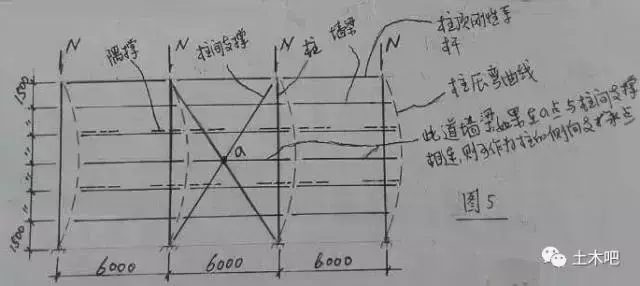 N
N
N
N
隅撑
柱间支撑
柱
墙梁
柱顶刚性系杆
柱压弯曲线
此道墙梁如果在a点与柱间支撑
相连,则可作为柱的侧向支承点
a
1500
"
"
"
"
1500
6000
6000
6000
图5
土木吧